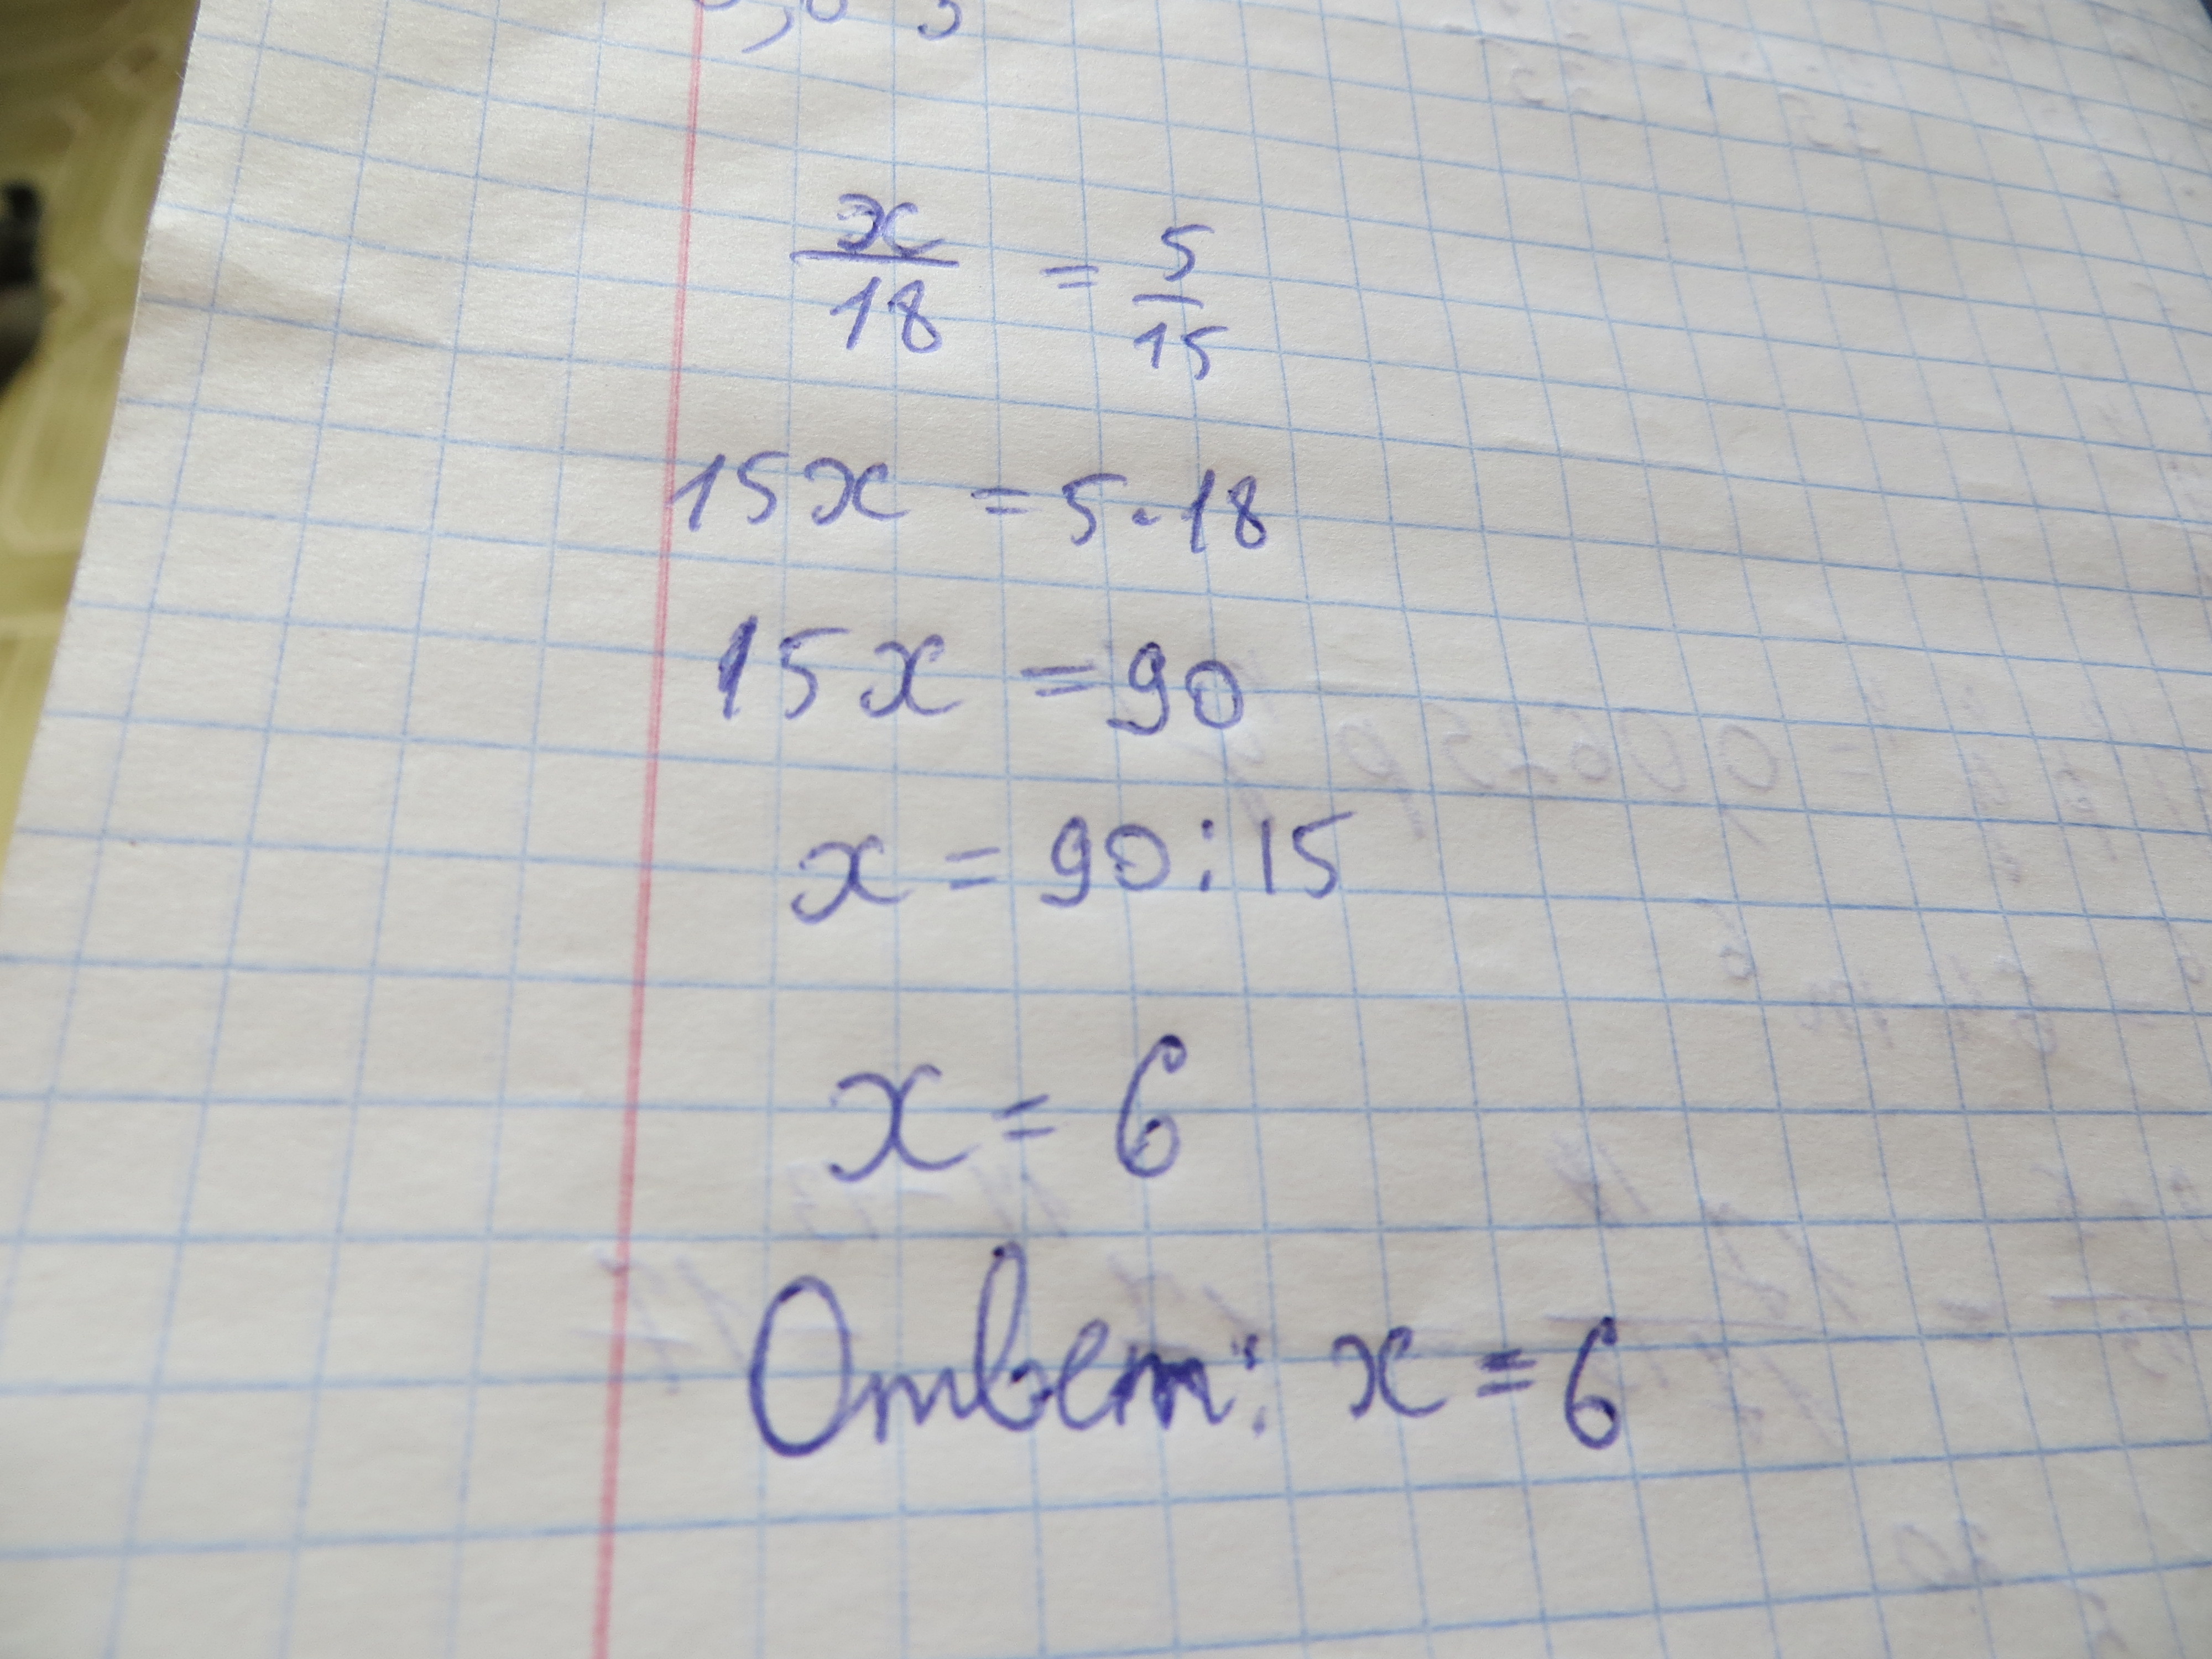 x/18 = 5/15
15x = 5·18
15x = 90
x = 90:15
x = 6
Ответ: x = 6